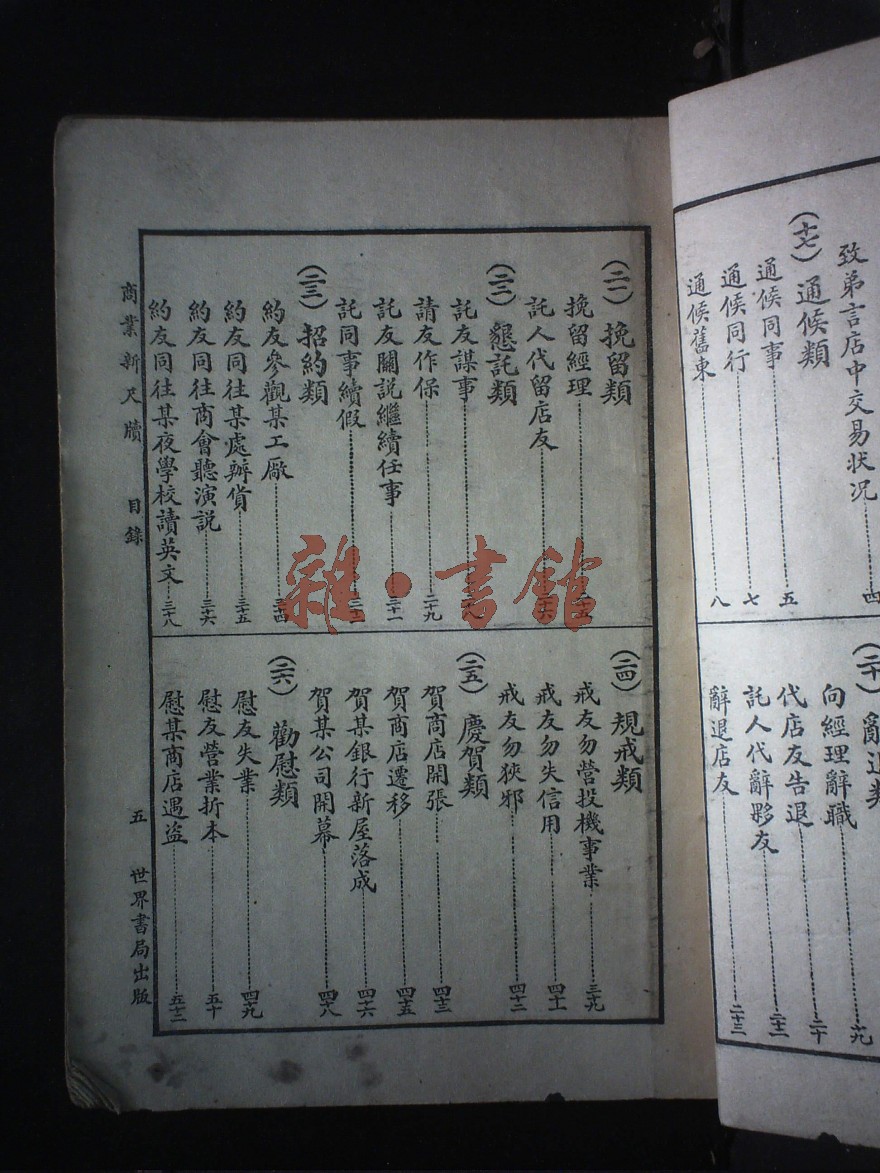 致弟言店中交易状况 四
（十七）通候類
通候同事 五
通候同行 七
通候舊東 八
（二十）辭退類
向經理辭職 十九
代店友告退 二十
託人代辭夥友 二十二
辭退店友 二十三
（二一）挽留類
挽留經理 二十五
託人代留店友
（二二）懇託類
託友謀事
請友作保 二十九
託友關說繼續任事 三十一
託同事續假
（二三）招約類
約友參觀某工廠 三十四
約友同往某處辦貨 三十五
約友同往商會聽演説 三十六
約友同往某夜學校讀英文 三十八
（二四）規戒類
戒友勿營投機事業 三十九
戒友勿失信用 四十一
戒友勿狹邪 四十二
（二五）慶賀類
賀商店開張 四十三
賀商店遷移 四十五
賀某銀行新屋落成 四十六
賀某公司開幕 四十八
（二六）勸慰類
慰友失業 四十九
慰友營業折本 五十
慰某商店遇盜 五十二
商業新尺牘 目錄 五 世界書局出版
雜·書館